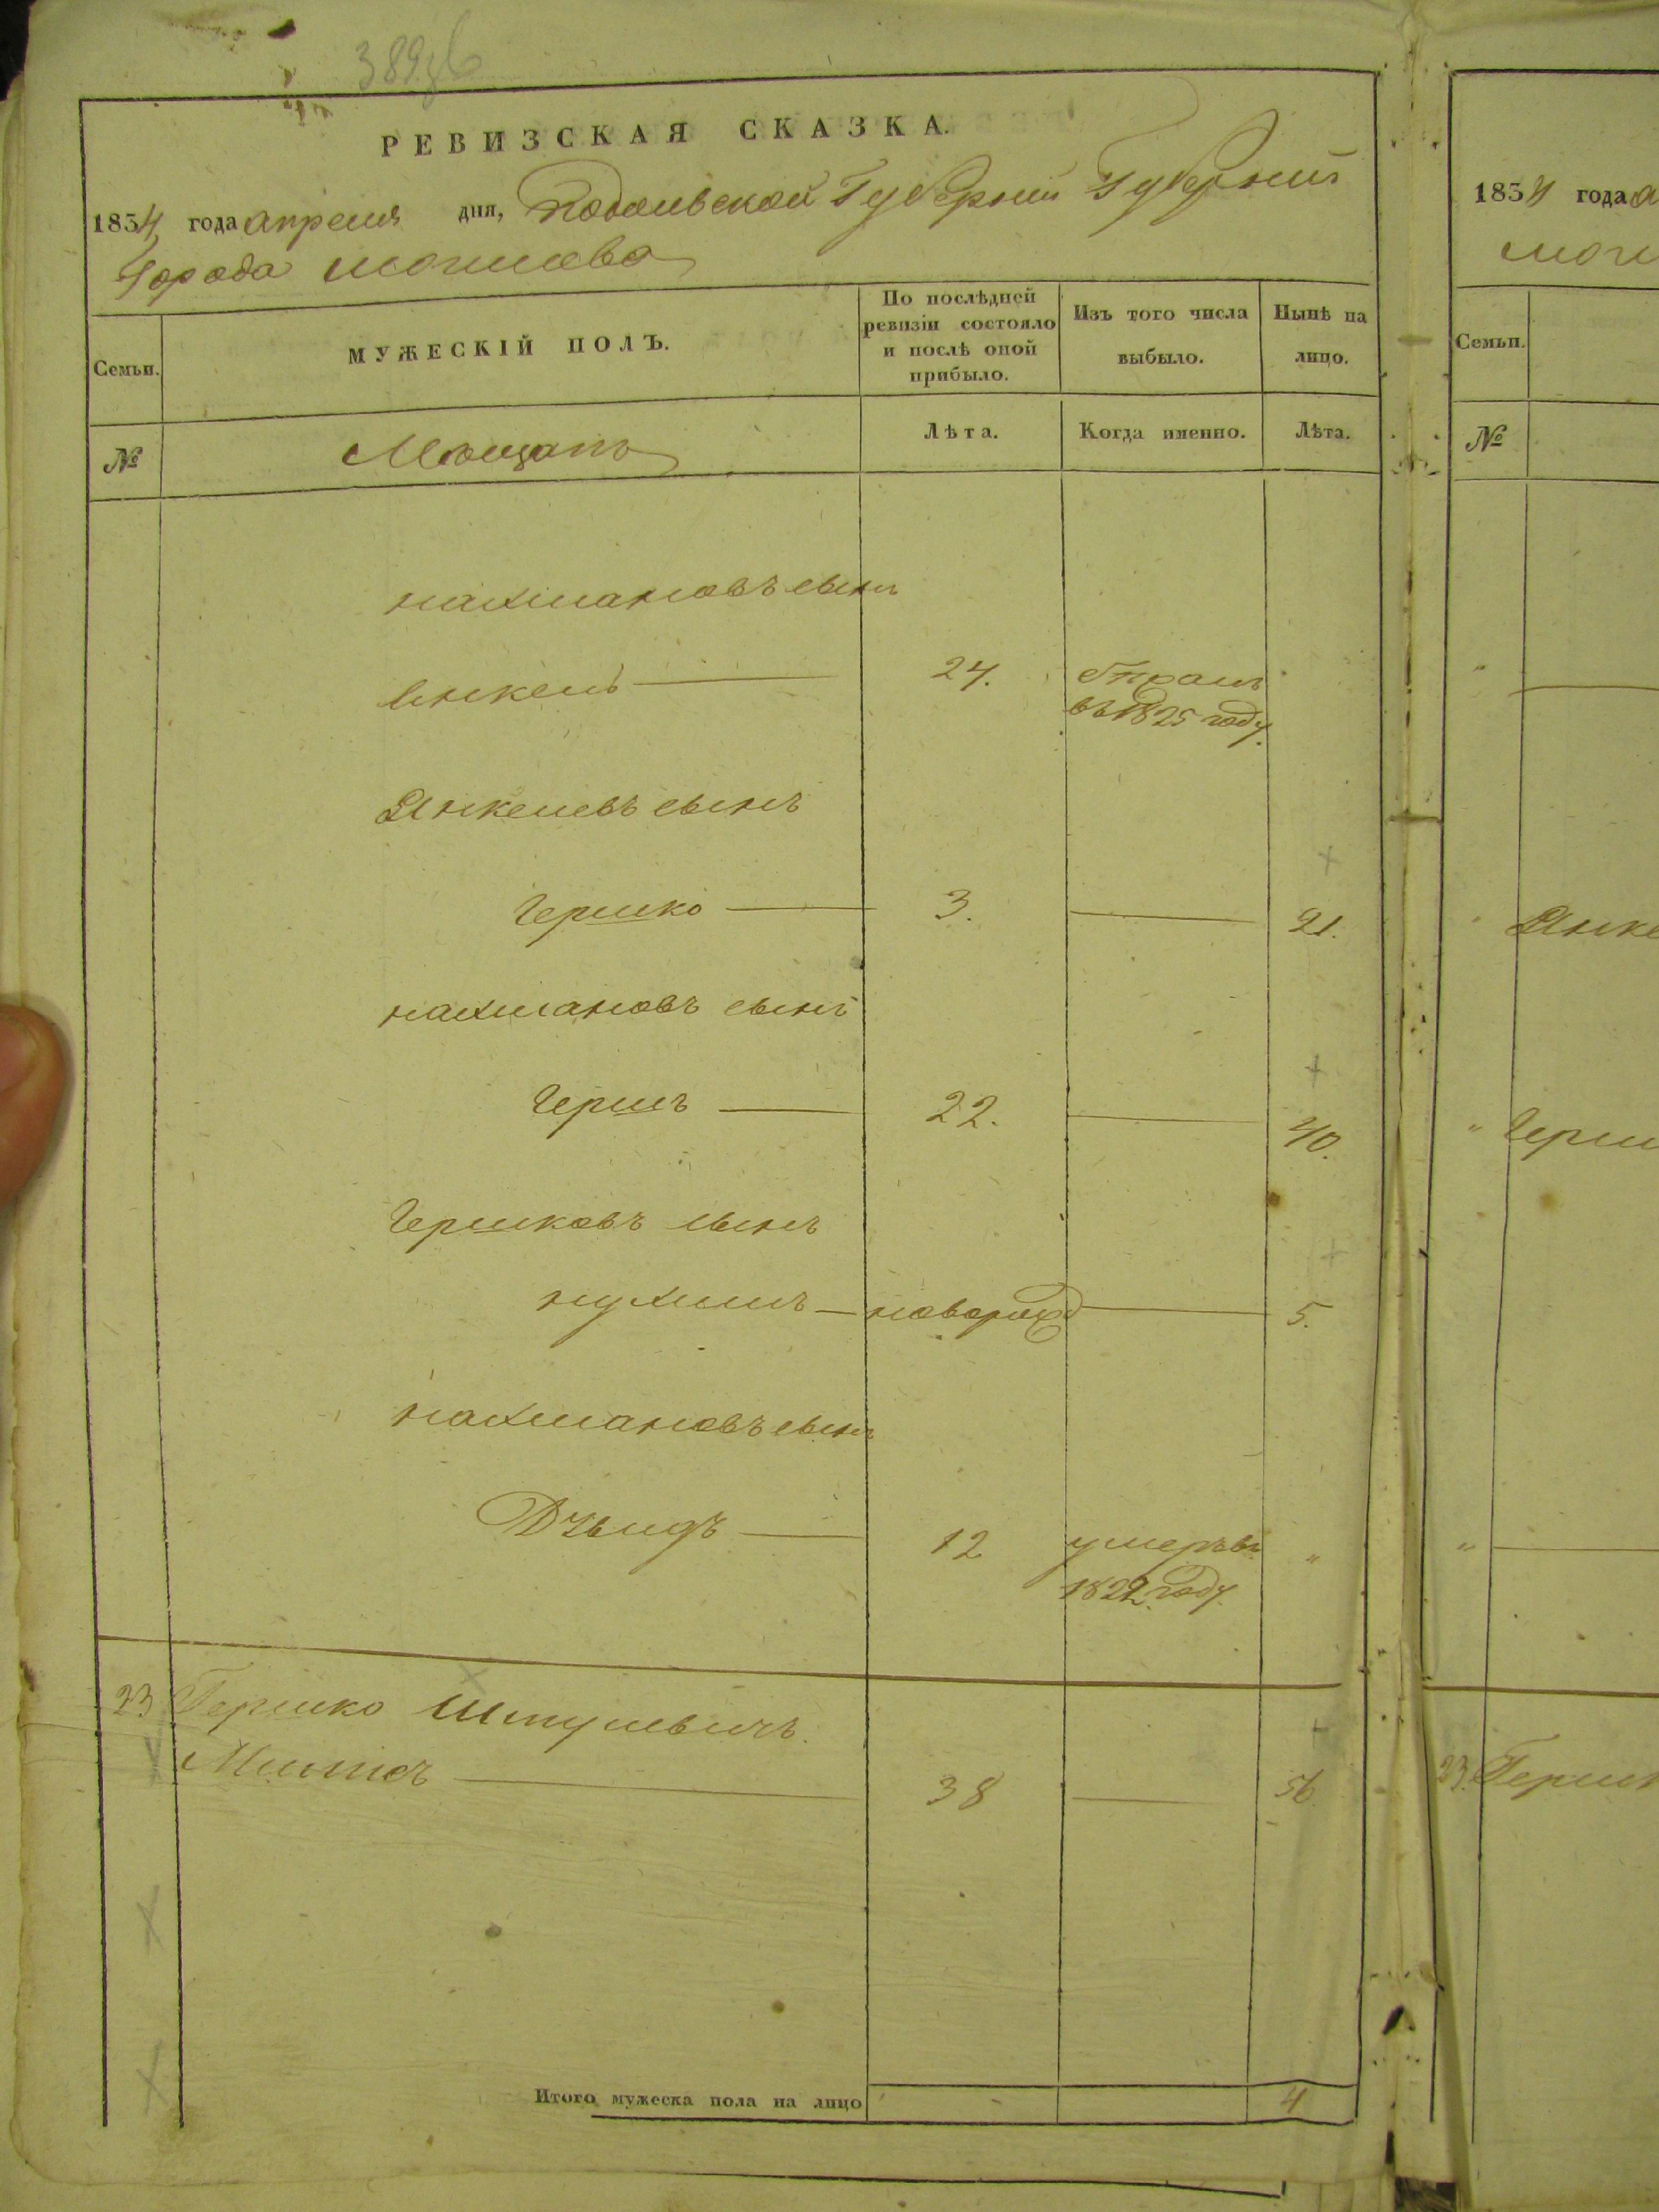 РЕВИЗСКАЯ СКАЗКА.
1834 года апреля дня, Подольской Губерніи Губерніи
Города Могилева
Семьи.
МУЖЕСКІЙ ПОЛЪ.
По послѣдней ревизіи состояло и послѣ оной прибыло.
Изъ того числа выбыло.
Нынѣ на лицо.
№
Мѣщанъ
Лѣта.
Когда именно.
Лѣта.
нахмановъ сынъ
Янкель 24.
въ 1825 году.
Янкелевъ сынъ
Гершко 3. 21.
нахмановъ сынъ
Гершъ 22. 40.
Гершковъ сынъ
нухимъ новорожд 5.
нахмановъ сынъ
12 умеръ въ "
1822. году.
23 Гершко Шмулевичъ
38 56
Итого мужеска пола на лицо 4
1834 года а
Моги
Семьи.
№
"
Янке
" Герш
"
23. Герш